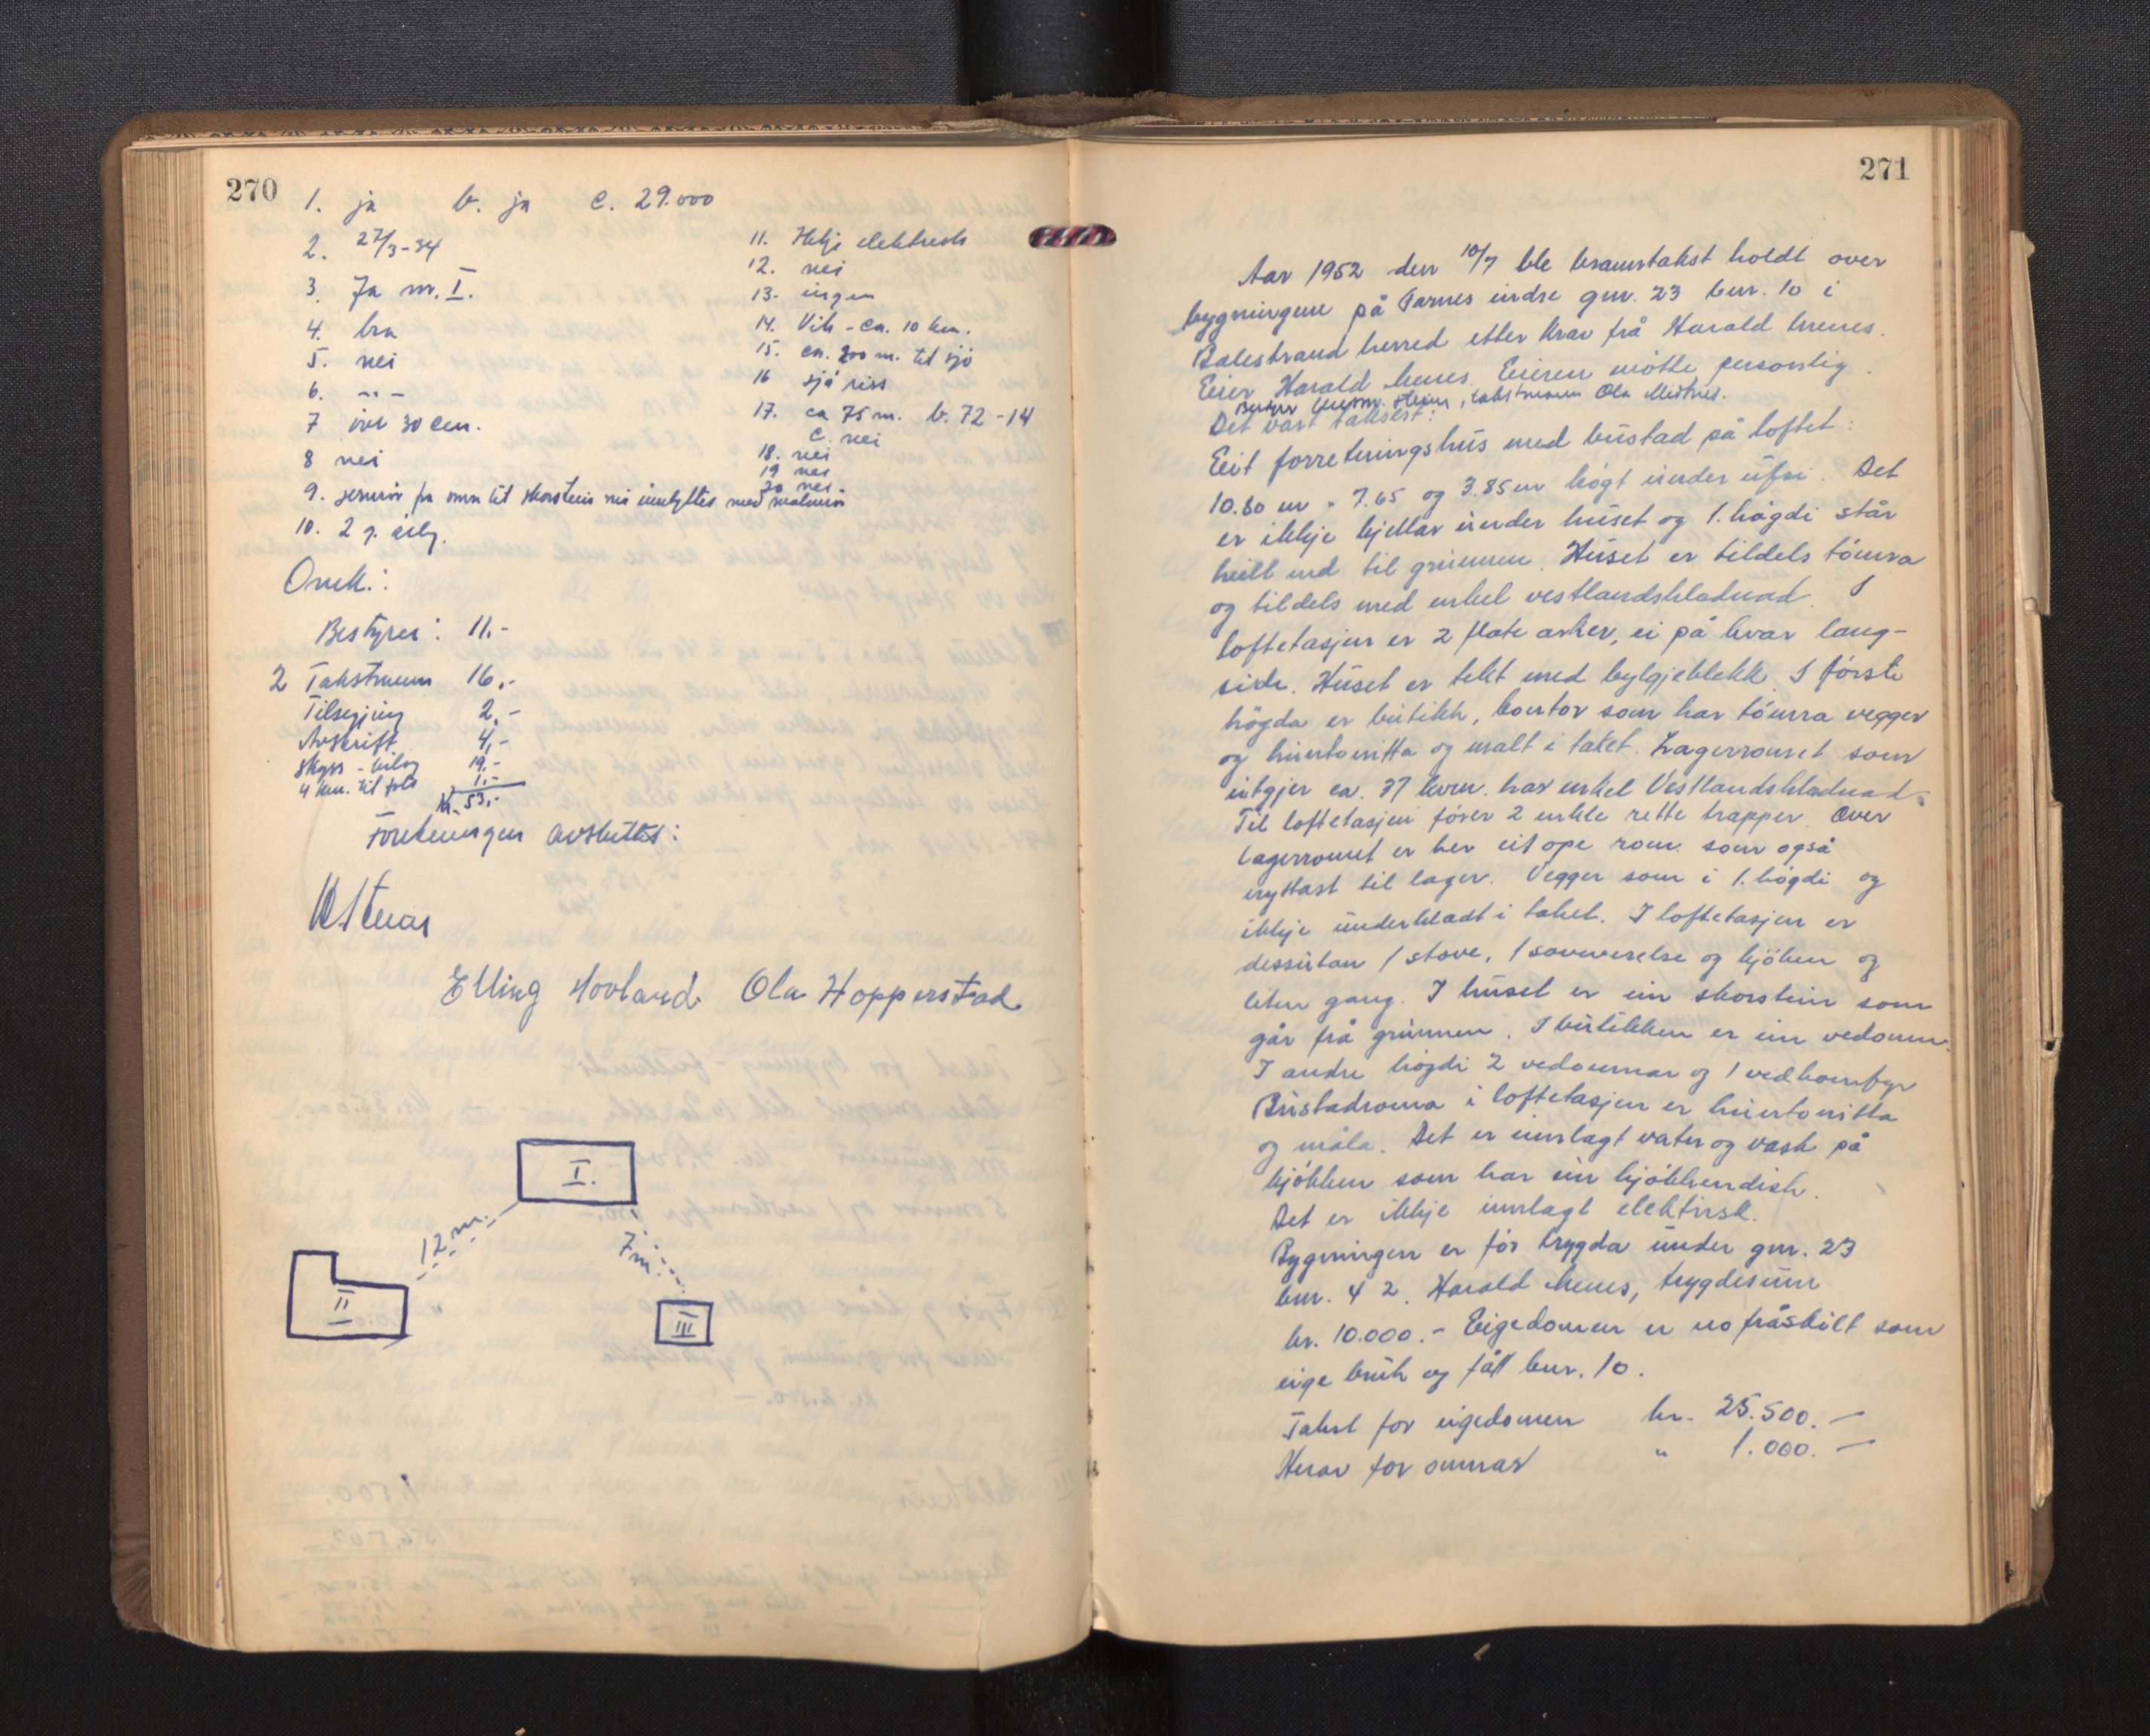 270
1. ja b. ja c. 29.000
2. 27/3-34
3. Ja nr. I.
4. bra
5. nei
6. -"-
7 ivl 30 cm.
8 nei
9. jernrör fra omn til skorstein
10. 2 g. årlig.
11. Ikkje elektrisk
12. nei
13. ingen
14. Vik - ca. 10 km.
15. ca. 200 m. til sjö
16 sjå riss
17. ca 75 m. b. 72 - 14
c. nei
18. nei
19 nei
20 nei.
Omk.:
Bestyrer: 11.-
2 Takstmenn 16.-
Tilsegjing 2,-
Avskrift 4,-
Skyss - bilog 19.-
4 km. til fots 1.-
kr. 53,-
Forretningen avsluttet:
Elling Hovland Ola Hopperstad
I.
12 m.
7 m.
II
III
271
Aar 1952 den 10/7 ble branntakst holdt over
bygningene på Farnes indre gnr. 23 bnr. 10 i
Balestrand herred etter krav frå Harald
Eier Harald Eieren møtte personlig.
takstmann Ola
Det vart taksert:
Eit forretningshus med bustad på loftet:
10.80 m × 7.65 og 3.85 m högt under ufsi. Det
er ikkje kjellar under huset og 1. högdi står
heilt ned til grunnen. Huset er tildels tömra
og tildels med enkel vestlandskladnad. I
loftetasjen er 2 flate arker, ei på kvar lang-
side. Huset er tekt med bylgjeblekk. I förste
högda er butikk, kontor som har tömra vegger
og huntonitta og malt i taket. Lagerromet som
utgjer ca. 37 kvm. har enkel Vestlandskladnad.
Til loftetasjen förer 2 enkle rette trapper. Over
lagerromet er her eit ope rom som også
nyttast til lager. Vegger som i 1. högdi og
ikkje underkladt i taket. I loftetasjen er
dessutan 1 stove, 1 soveverelse og kjöken og
liten gang. I huset er ein skorstein som
går frå grunnen. I butikken er ein vedomn.
I andre högdi 2 vedomnar og 1 vedkomfyr
Bustadroma i loftetasjen er huntonitta
og måla. Det er innlagt vatn og vask på
kjökken som har ein kjökkendisk.
Det er ikkje innlagt elektrisk.
Bygningen er för trygda under gnr. 23
bnr. 4 2. Harald trygdesum
kr. 10.000.- Eigedomen er no fråskilt som
eige bruk og fått bnr. 10.
Takst for eigedomen kr. 25.500.-
Herav for omnar " 1.000.-